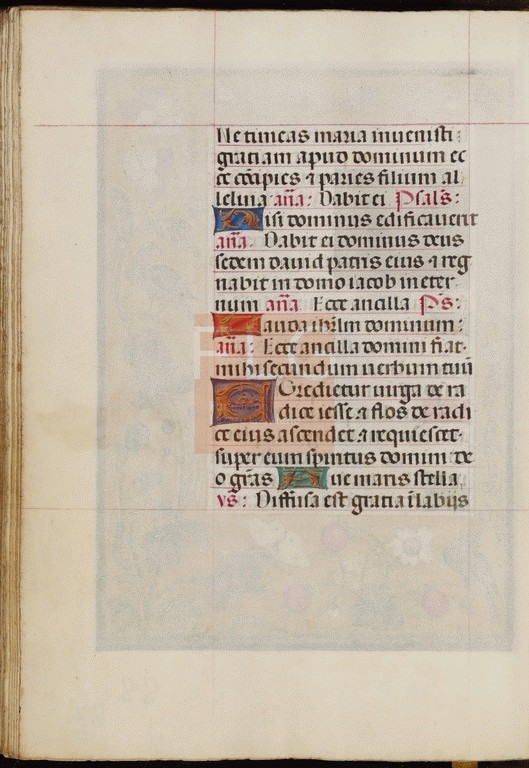 Ne timeas maria invenisti
gratiam apud dominum ec
ce cōcipies ⁊ paries filium al
leluia añā: Dabit ei Psalṡ:
Nisi dominus edificaverit
añā. Dabit ei dominus deus
sedem david patris eius ⁊ reg
nabit in domo iacob in eter
num añā. Ecce ancilla Ps̄:
Lauda ihrlm dominum:
añā: Ecce ancilla domini fiat
mihi secundum verbum tuū
Egredietur virga de ra
dice iesse ⁊ flos de radi
ce eius ascendet ⁊ requiescet
super eum spiritus domini: de
o grās Ave maris stella
vs: Diffusa est gratia ī labijs